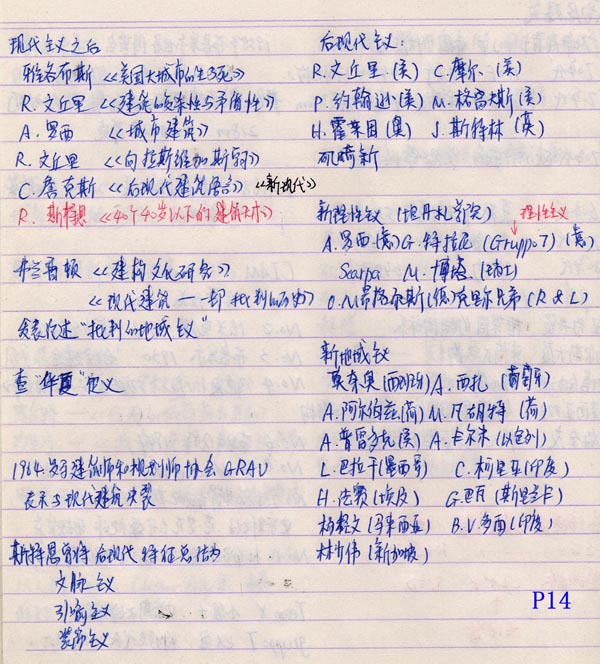 现代主义之后
雅各布斯 《美国大城市的生与死》
R.文丘里 《建筑的复杂性与矛盾性》
A.罗西 《城市建筑》
R.文丘里 《向拉斯维加斯学习》
C.詹克斯 《后现代建筑语言》 《新现代》
R. 斯特恩 《40个40岁以下的建筑师》
弗兰普顿 《建构文化研究》
《现代建筑——一部批判的历史》
发表论述“批判的地域主义”
查“华夏”定义
1964 建筑师和规划师协会 GRAU
表示与现代建筑决裂
斯特恩曾将后现代特征总结为
文脉主义
引喻主义
装饰主义
后现代主义:
R.文丘里.(美) C.摩尔.(美)
P.约翰逊(美) M.格雷夫斯(美)
H.霍莱因(奥) J.斯特林(英)
矶崎新
新理性主义(坦丹札学派) 理性主义
A.罗西(意) G.特拉尼(Gruppo 7)(意)
Scarpa M.博塔.(瑞士)
O.M.昂格尔斯(德) 克里尔兄弟(R & L)
新地域主义
莫奈奥(西班牙) A.西扎(葡萄牙)
A.阿尔伯兹(荷) M.凡胡特(荷)
A.普雷多克(美) A.卡尔米(以色列)
L.巴拉干(墨西哥) C.柯里亚(印度)
H.法赛(埃及) G.巴瓦(斯里兰卡)
杨经文(马来西亚) B.V.多西(印度)
林少伟(新加坡)
P14